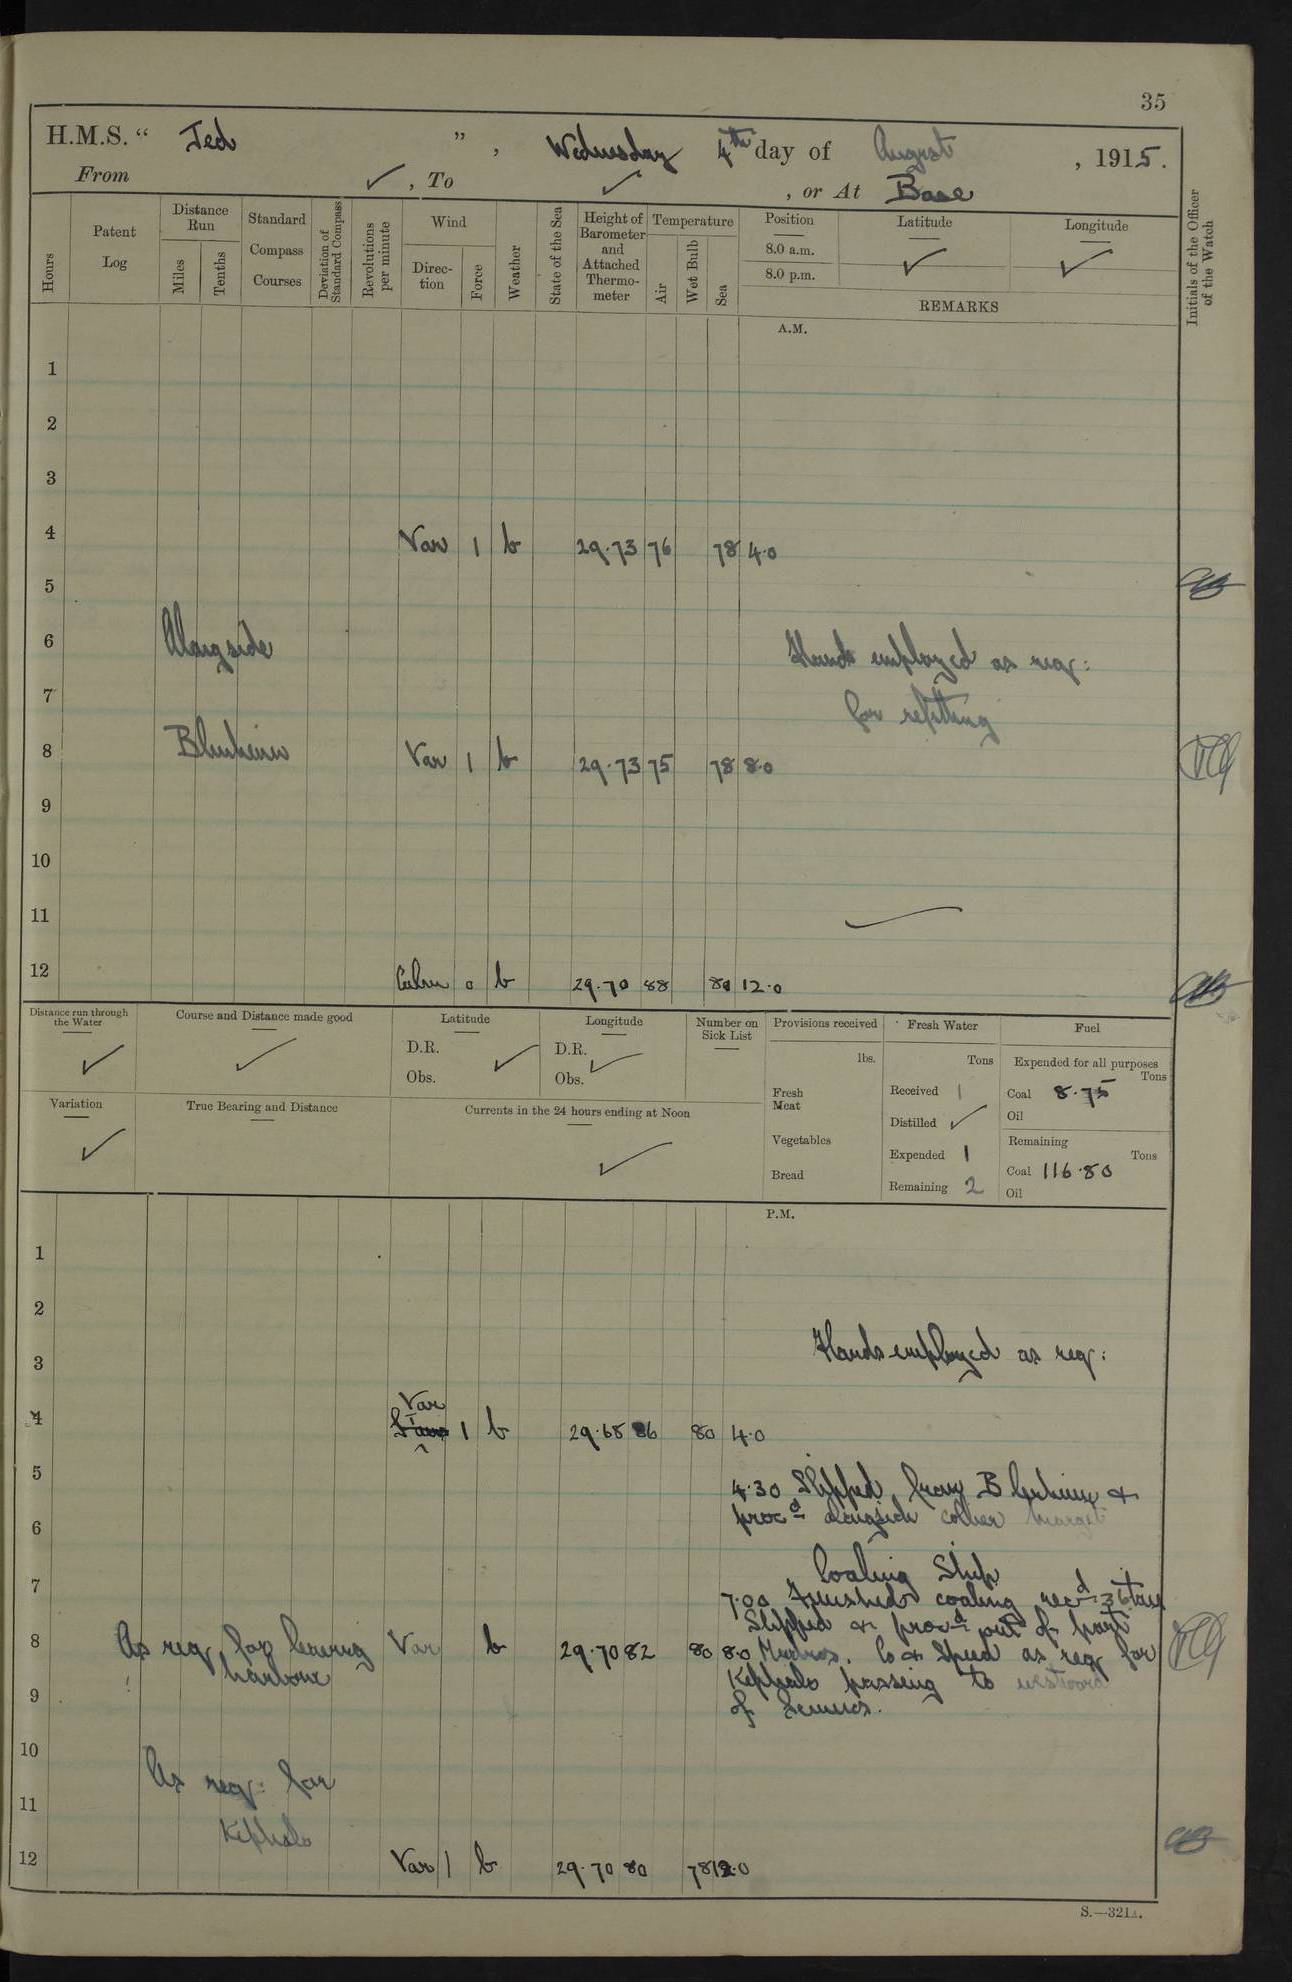 35
H.M.S. " Jed " , Wednesday 4th day of August , 1915.
From ✓ , To ✓ , or At Base
Hours
Patent Log
Distance Run
Miles
Tenths
Standard Compass Courses
Deviation of Standard Compass
Revolutions per minute
Wind
Direc-tion
Force
Weather
State of the Sea
Height of Barometer and Attached Thermo-meter
Temperature
Air
Wet Bulb
Sea
Position
8.0 a.m.
8.0 p.m.
Latitude
✓
Longitude
✓
REMARKS
Initials of the Officer of the Watch
A.M.
1
2
3
4 Var 1 b 29.73 76 78 4.0
5
6 Alongside Hands employed as req:
7 for refitting
8 Blenheim Var 1 b 29.73 75 78 8.0
9
10
11
12 Calm 0 b 29.70 88 80 12.0
Distance run through the Water
✓
Course and Distance made good
✓
Latitude
D.R. ✓
Obs.
Longitude
D.R. ✓
Obs.
Number on Sick List
Provisions received
lbs.
Fresh Meat
Vegetables
Bread
Fresh Water
Tons
Received 1
Distilled ✓
Expended 1
Remaining 2
Fuel
Expended for all purposes
Tons
Coal 8.75
Oil
Remaining
Tons
Coal 116.80
Oil
Variation
✓
True Bearing and Distance
Currents in the 24 hours ending at Noon
✓
P.M.
1
2
3 Hands employed as req:
4 Var 1 b 29.68 86 80 4.0
5 4.30 Slipped from Blenheim &
6 procd alongside collier
Coaling Ship
7 7.00 Finished coaling recd 36 tons
Slipped & procd out of port
8 As req for leaving Var b 29.70 82 80 8.0 Mudros. Co & Speed as req for
harbour Kephalo passing to westward
9 of Lemnos.
10 As req: for
11 Kephalo
12 Var 1 b 29.70 80 78 12.0
S.—321A.